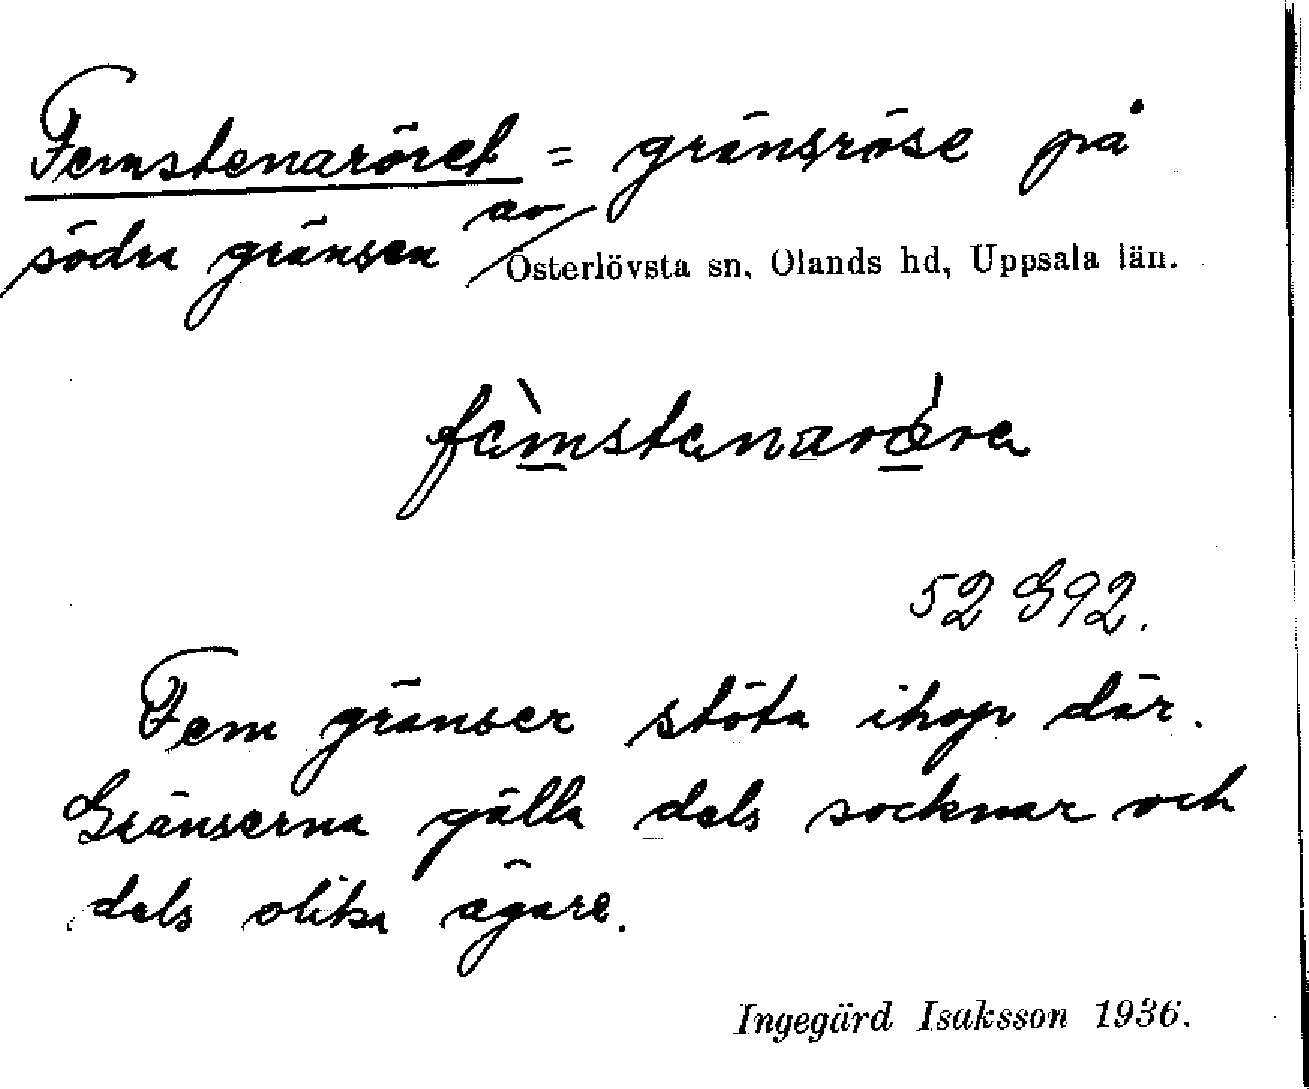 Femstenaröret = gränsröse på
södra gränsen av Österlövsta sn, Olands hd, Uppsala län.
fèmstenarǿre
52 G92.
Fem gränser stöta ihop där.
Gränserna gälla dels socknar och
dels olika ägare.
Ingegärd Isaksson 1936.